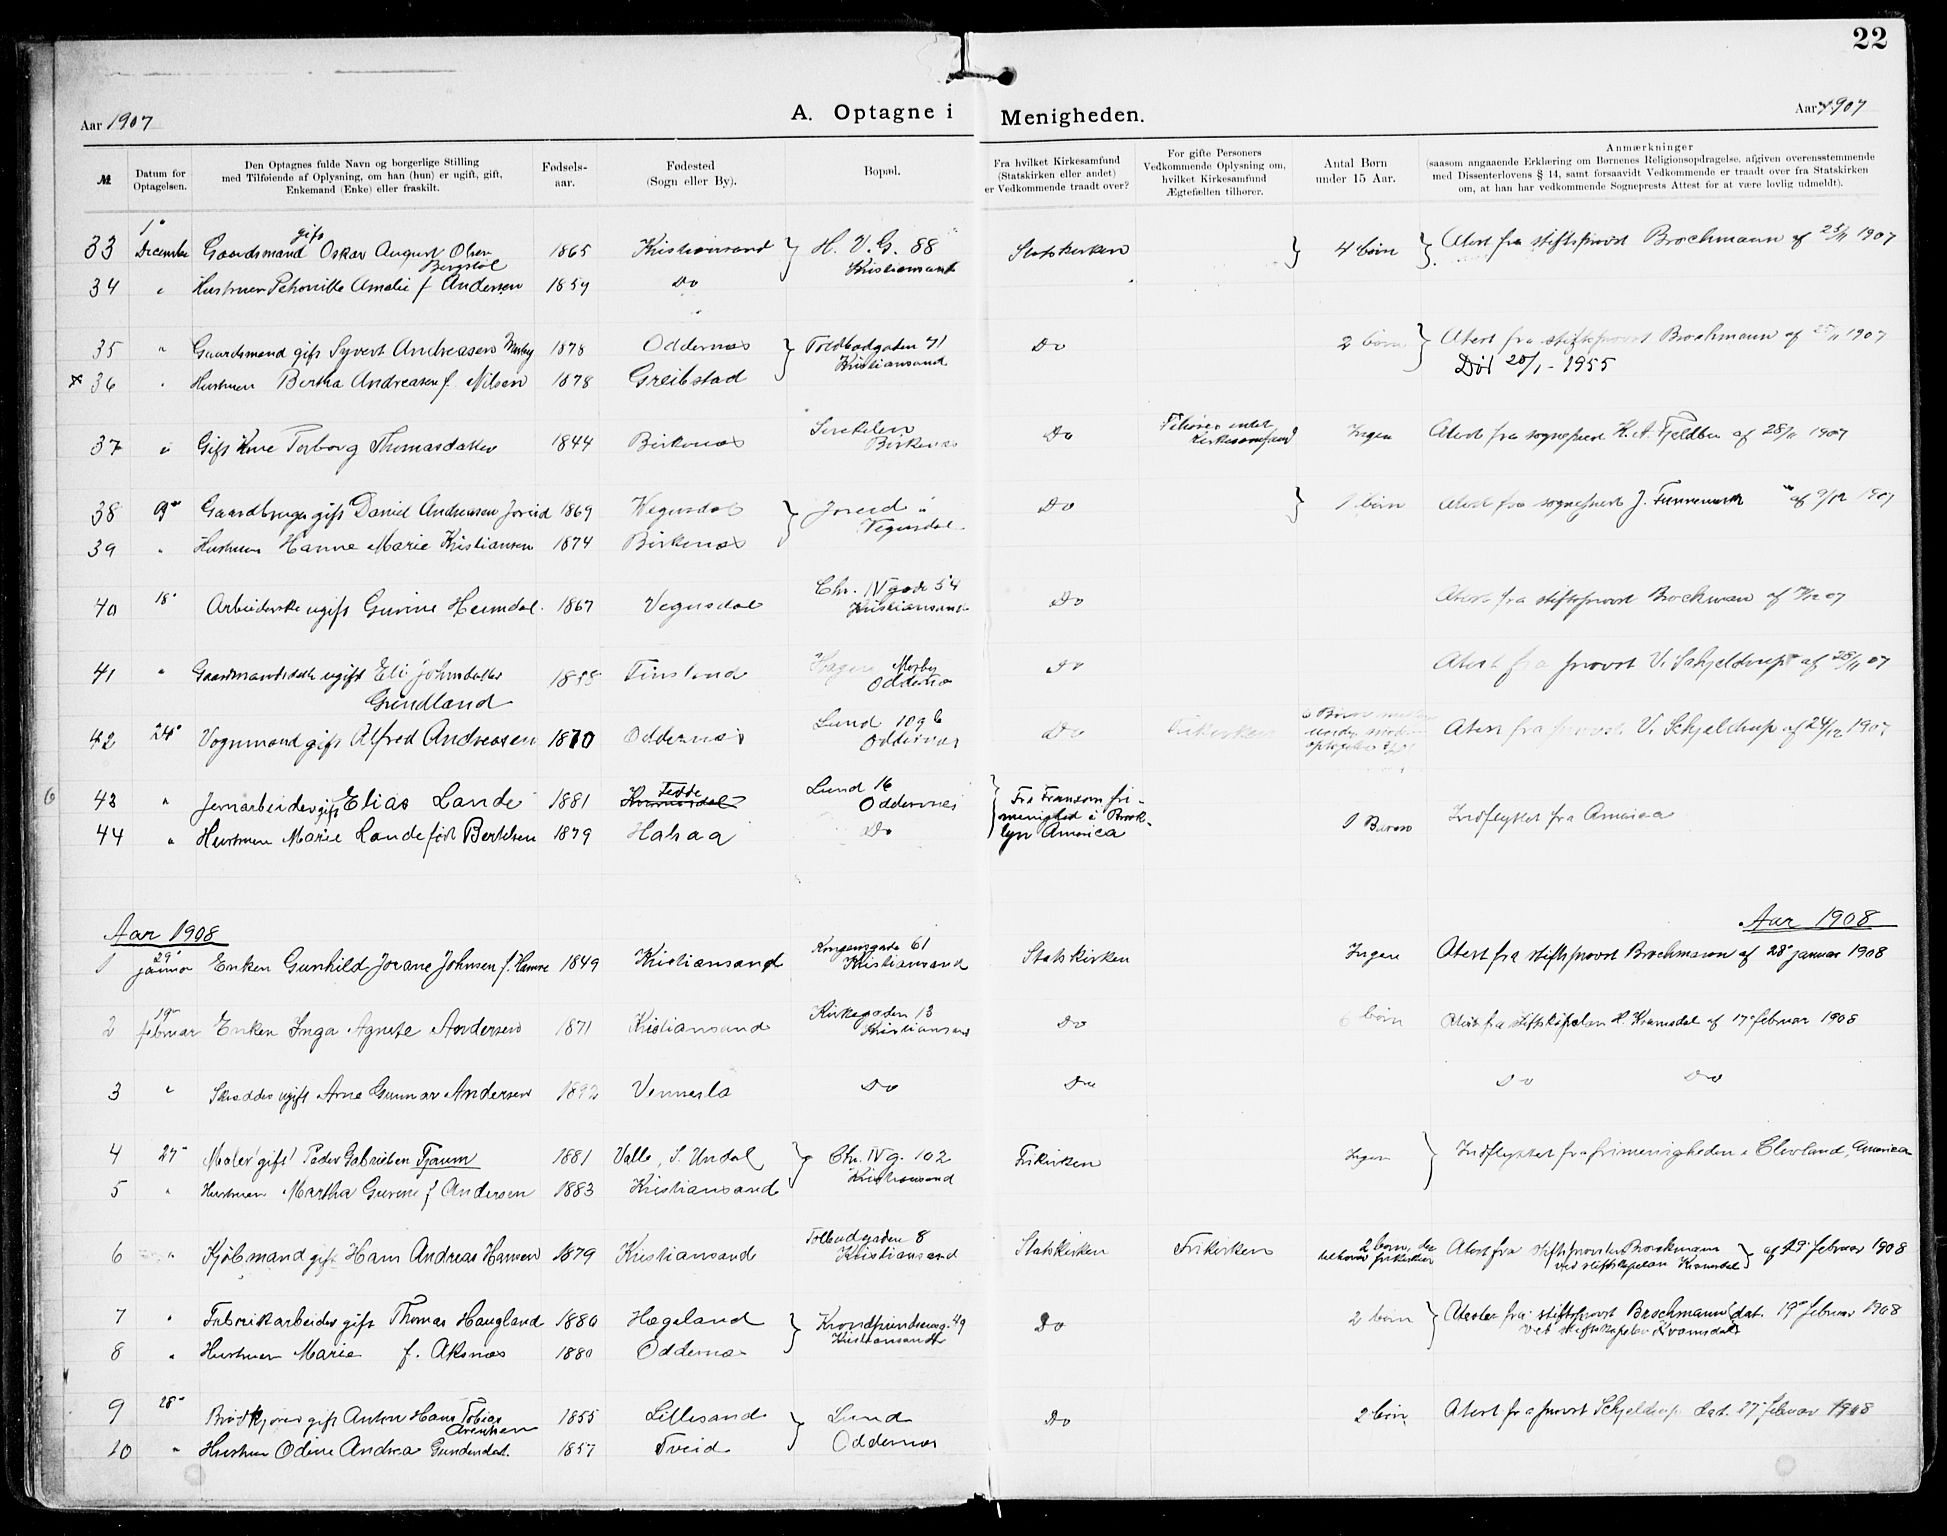 22
A. Optagne i Menigheden.
Aar 1907
Aar 1907
№
Datum for Optagelsen.
Den Optagnes fulde Navn og borgerlige Stilling
med Tilføiende af Oplysning, om han (hun) er ugift, gift,
Enkemand (Enke) eller fraskilt.
Fødsels-aar.
Fødested
(Sogn eller By).
Bopæl.
Fra hvilket Kirkesamfund
(Statskirken eller andet)
er Vedkommende traadt over?
For gifte Personers
Vedkommende Oplysning om,
hvilket Kirkesamfund
Ægtefællen tilhører.
Antal Børn
under 15 Aar.
Anmærkninger
(saasom angaaende Erklæring om Børnenes Religionsopdragelse, afgiven overensstemmende
med Dissenterlovens § 14, samt forsaavidt Vedkommende er traadt over fra Statskirken
om, at han har vedkommende Sogneprests Attest for at være lovlig udmeldt).
33 1ᵉ December Gaardsmand gift Oskar August Olsen Bergstøl 1865 Kristiansand } H. V. G. 88 Kristiansand Statskirken } 4 børn } Atest fra stiftsprovst Brochmann af 25/11 1907
34 " Hustruen Amalie f Andersen 1859 Do
35 " Gaardsmand gift Syvert Andreasen Mosby 1878 Oddernæs } Toldbodgaden 71 Kristiansand Do 2 børn } Atest fra stiftsprovst Brochmann af 25/11 1907
x 36 " Hustruen Bertha Andreasen f. Nilsen 1878 Greibstad Død 20/1 - 1955
37 " Gift Kone Torborg Thomasdatter 1844 Birkenæs Birkenæs Do Tilhører intet Kirkesamfund Ingen Atest fra sogneprest K. A. Fjeldbu af 28/11 1907
38 9ᵈᵉ Gaardbruger gift Daniel Andreasen Joreid 1869 Vegusdal } Joreid i Vegusdal Do } 1 børn Atest fra sogneprest J. af 9/12 1907
39 " Hustruen Hanne Marie Kristiansen 1874 Birkenæs
40 18ᵉ Arbeiderske ugift Gurine Heimdal 1867 Vegusdal Chr. IV gade 54 Kristiansand Do Atest fra stiftsprovst Brockman af /12 07
41 " Gaardmandsdatter ugift Eli Johnsdatter Grindland Finsland Mosby Oddernæs Do Atest fra provst V. Schjeldrup af 28/11 07
42 24ᵉ Vognmand gift Alfred Andreasen 1870 Oddernæs Lund 109 b Oddernæs Do Frikirken 6 Børn Atest fra provst V. Schjeldrup af 24/12 1907
43 " Jernarbeider gift Elias Lande 1881 Fedde Lund 16 Oddernes } Fra frimenighed i Brooklyn America Indflyttet fra America
44 " Hustruen Marie Lande født Bertelsen 1879 Halsaa Do 1 Barn
Aar 1908
Aar 1908
1 29ᵉ januar Enken Gunhild Jorane Johnsen f. Hamre 1849 Kristiansand Kongensgade 61 Kristiansand Statskirken Ingen Atest fra stiftsprovst Brochmann af 28ᵉ januar 1908
2 19ᵈᵉ februar Enken Inga Agnete Andersen 1871 Kristiansand Kirkegaden 13 Kristiansand Do 6 børn Atest fra stiftskapelan H. Kvamsdal af 17ᵉ februar 1908
3 " Skredder ugift Arne Gunnar Andersen 1892 Vennesla Do Do Do Do
4 27ᵉ Maler gift Peder Gabrielsen Tjaum 1881 Valle, S. Undal } Chr. IV g. 102 Kristiansand Frikirken Ingen } Indflyttet fra frimenigheden i Clevland, America
5 " Hustruen Martha Gurine f Andersen 1883 Kristiansand
6 " Kjøbmand gift Hans Andreas Hansen 1879 Kristiansand Tolbodgaden 8 Kristiansand Statskirken Frikirken 2 børn, de tilhører frikirken Atest fra stiftsprovsten Brockmann ved stiftskapelan Kvamsdal } af 19ᵉ februar 1908
7 " Fabrikarbeider gift Thomas Haugland 1880 Hægeland } Kronprindseng. 49 Kristiansand Do 2 børn } Atester fra stiftsprovst Brochmann ved stiftskapelan Kvamsdal dat. 19ᵈᵉ februar 1908
8 " Hustruen Marie f. Aksnæs 1880 Oddernæs
9 28ᵉ Brødkjører gift Anton Hans Tobias Arentsen 1855 Lillesand } Lund Oddernæs Do 2 børn Atest fra provst Schjeldrup dat. 27ᵉ februar 1908
10 " Hustruen Odine Andrea Gundersdat. 1857 Tveid